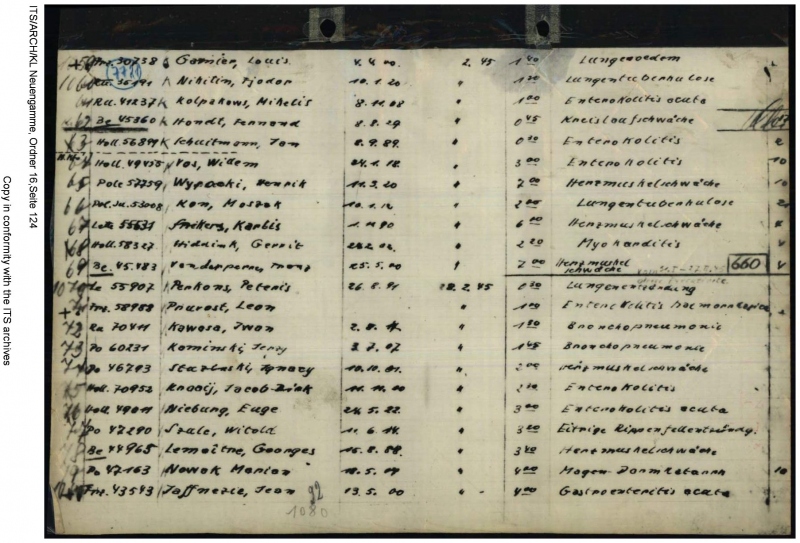 ITS/ARCH/KL Neuengamme, Ordner 16, Seite 124
Copy in conformity with the ITS archives
50758 Garnier, Louis 4.4.00. 2.45 1 40 Lungenoedem
1060 Nikitin, Fjodor 10.1.20 " 1 20 Lungentuberkulose
61 Ru. 41237 Kolpakows, Mihelis 8.11.08 " 1 00 Enterokolitis acuta
62 Be 45360 Hondt, Fernand 8.8.29 " 0 45 Kreislaufschwäche
63 Holl. 56891 Schuitmann, Jan 8.9.89. " 0 30 Enterokolitis
64 Holl. 49455 Vos, Widem 24.1.18. " 3 00 Enterokolitis 10
65 Pole 57759 Wypacki, Henrik 11.3.20 " 7 00 Herzmuskelschwäche 10
66 Pol.Ju. 53008 Kon, Moszek 10.1.12 " 2 00 Lungentuberkulose
67 Lett. 55631 Snikers, Karlis 1.11.90 " 6 00 Herzmuskelschwäche
68 Holl. 58327 Hiddink, Gerrit " 2 20 Myokarditis
69 Be. 45183 25.5.00 2 00 Herzmuskelschwäche 660
1070 Le 55907 Penkons, Peteris 26.8.91 28.2.45 0 30 Lungenentzündung
71 Frz. 58988 Prurost, Leon " 1 00
72 Ru 70411 Kawosa, Iwan " 1 30 Bronchopneumonie
73 Po 60231 Kominski, Jerzy 3.7.07 " 1 45 Bronchopneumonie
74 Po 46793 Ignacy 10.10.01. " 2 00 Herzmuskelschwäche
75 Holl. 70952 Knooij, Jacob-Dirk 11.11.00 " Enterokolitis
76 Holl. 49011 Nieburg, Euge 24.5.22. " 3 00 Enterokolitis acuta
77 Po 47290 Szule, Witold 11.6.14. " 3 00 Eitrige Rippenfellentzündg.
78 Be 44965 Lemoître, Georges 15.8.88. " 3 40 Herzmuskelschwäche
79 Po 47163 Nowak Marian 18.5.07 " 4 00 Magen-Darmkatarrh 10
Frz. 43543 Jaffnezic, Jean 92 13.5.00 " 4 00 Gastroenteritis acuta
1080